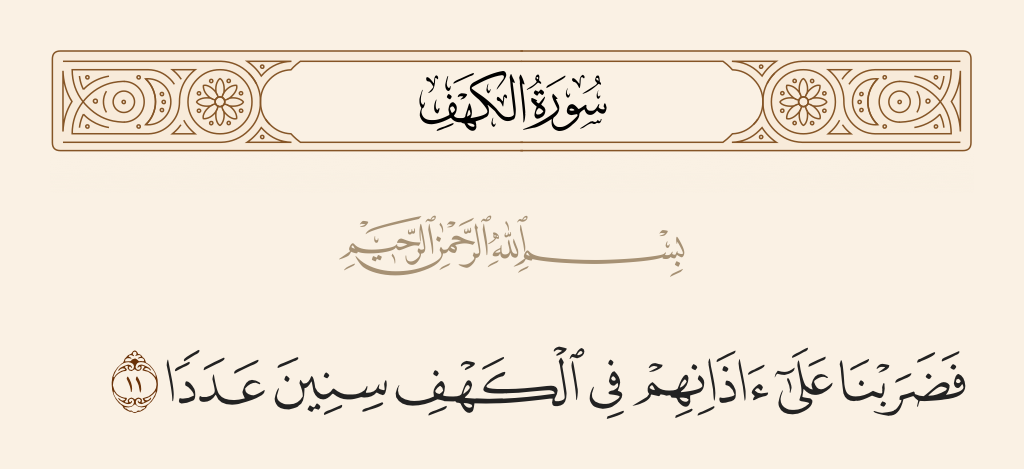 سُورَةُ الكَهْفِ
بِسْمِ ٱللَّهِ ٱلرَّحْمَٰنِ ٱلرَّحِيمِ
فَضَرَبْنَا عَلَىٰٓ ءَاذَانِهِمْ فِى ٱلْكَهْفِ سِنِينَ عَدَدًا ١١